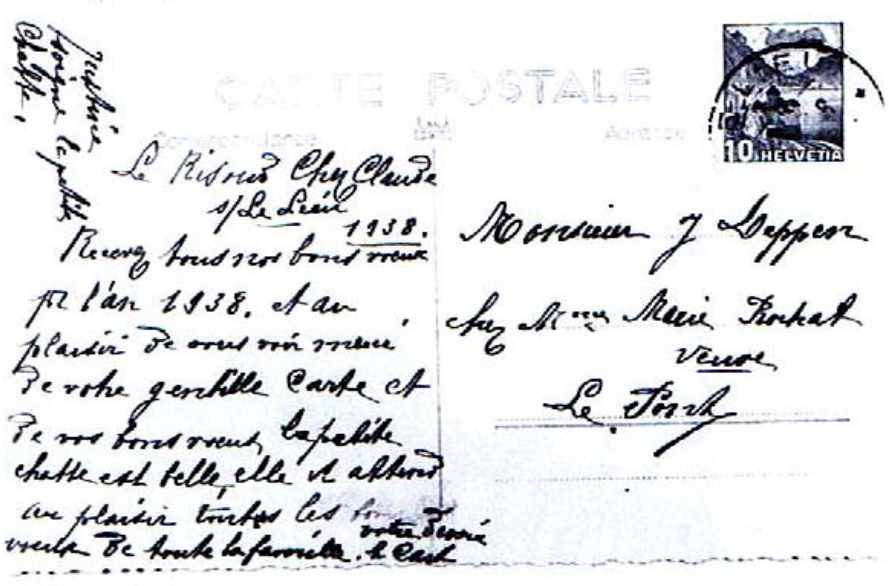 CARTE POSTALE
Correspondance
Adresse
10 HELVETIA
Justine
soigne la petite
Chatte.
Le Risoud Chez Claude
s/Le Lieu
1938.
Recevez tous nos bons voeux
pr l'an 1938. et au
plaisir de vous voir merci
de votre gentille Carte et
de vos bons voeux, la petite
chatte est belle, elle et attend
au plaisir toutes les
voeux de toute la famille.
votre
Monsieur J Deppen
chez Mme Marie Rochat
veuve
Le Pont